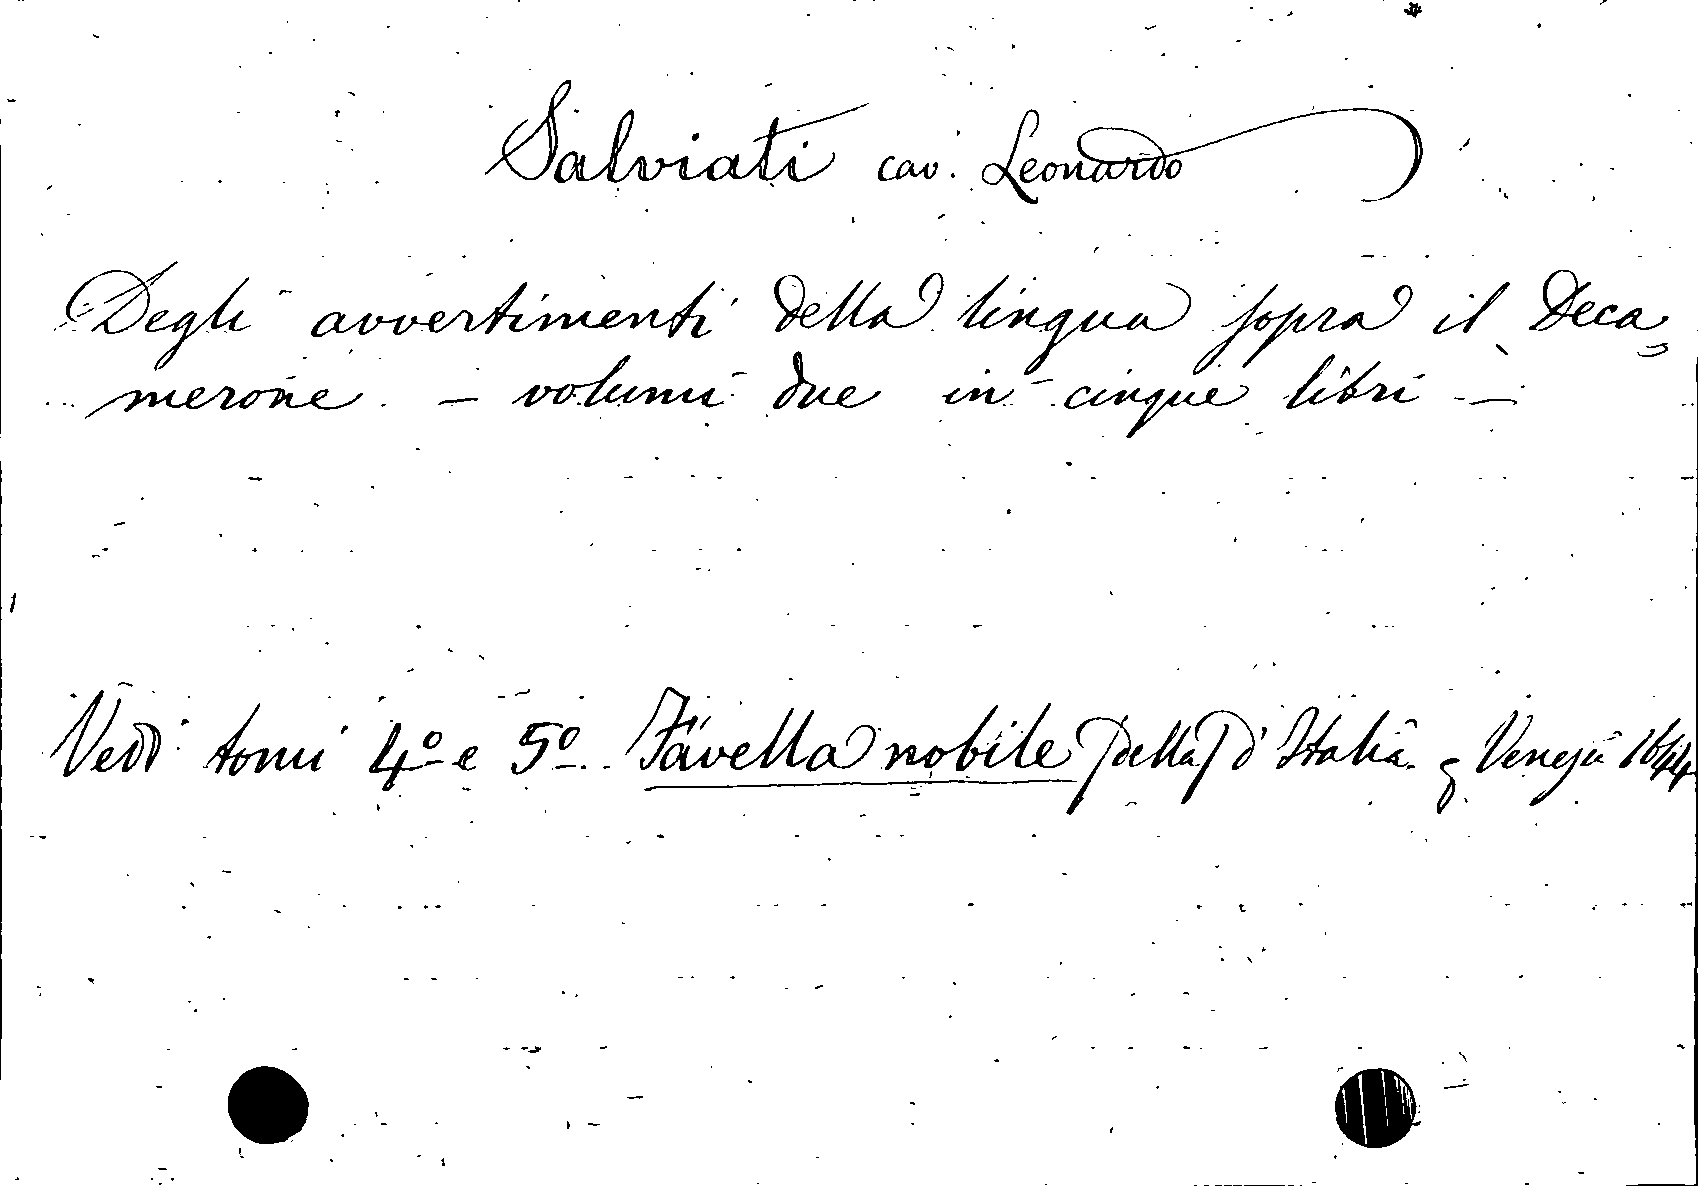 Salviati cav. Leonardo
Degli avvertimenti della lingua sopra il Deca=
merone - volumi due in cinque libri -
Vedi tomi 4º e 5º Favella nobile (della) d'Italia. Venezia 1644